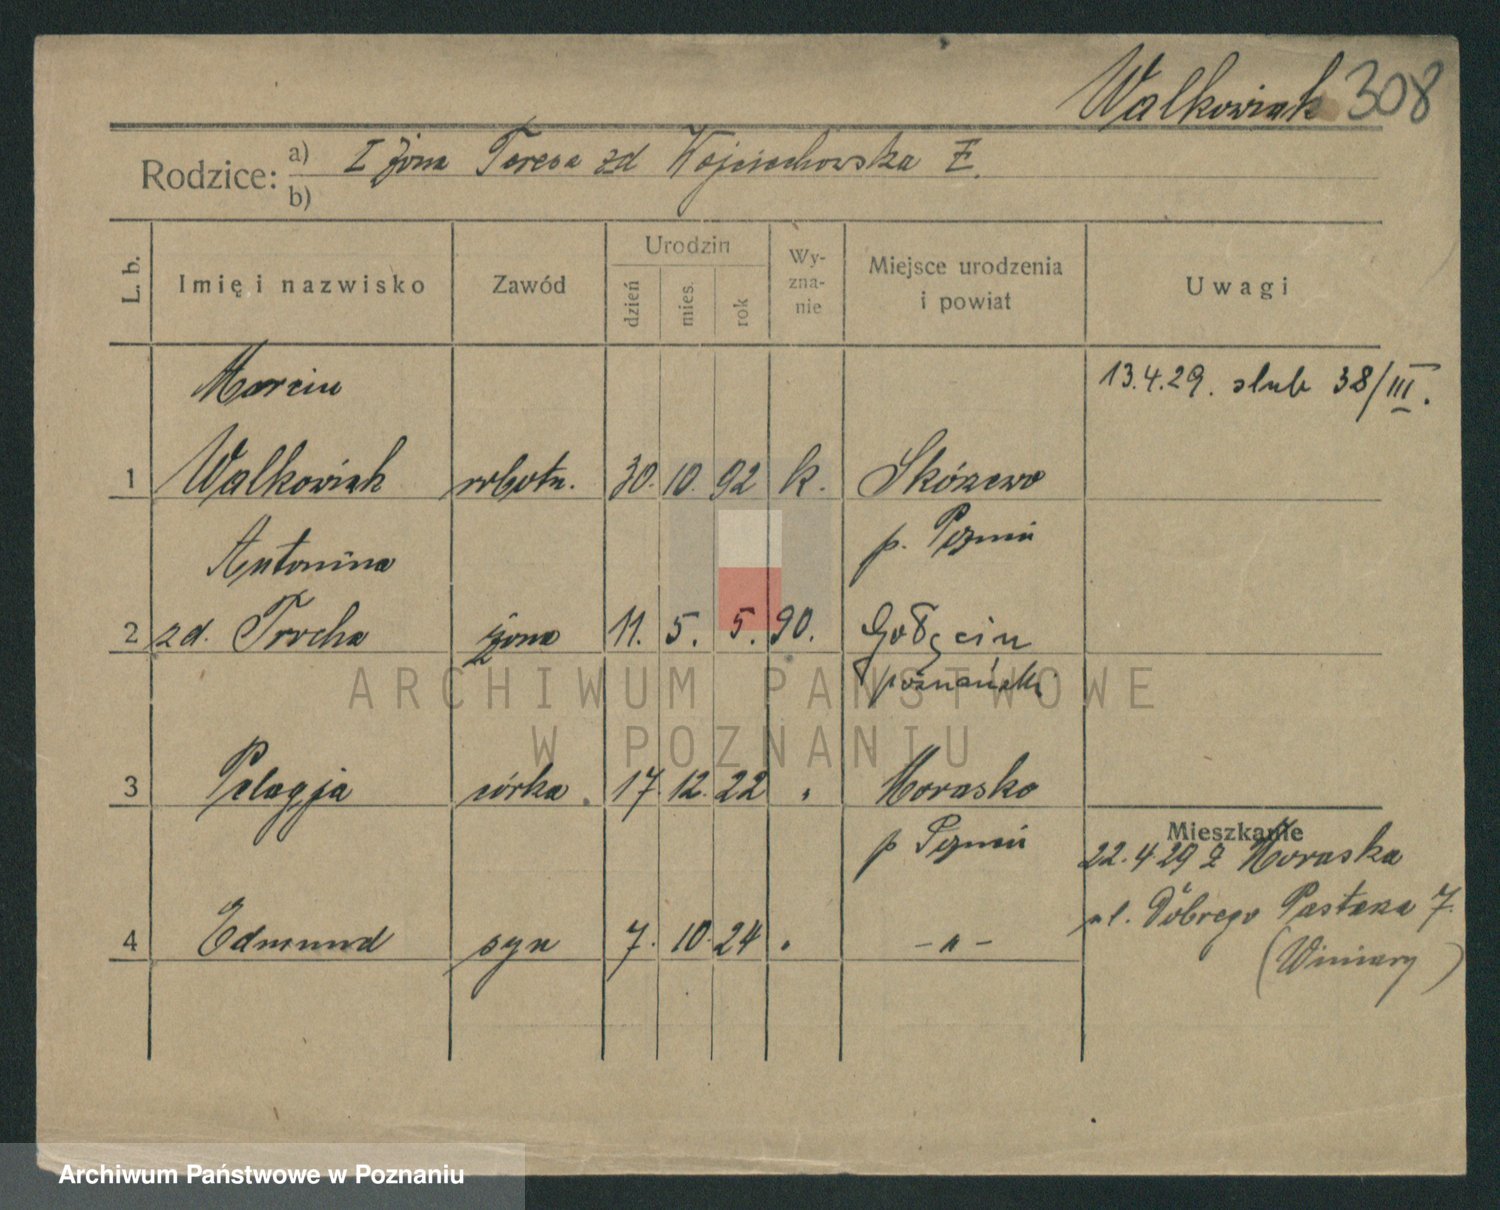 Walkowiak 308
Rodzice: a) I żona Teresa zd Wojciechowska
b)
L. b.
Imię i nazwisko
Zawód
Urodzin
dzień
mies.
rok
Wy-
zna-
nie
Miejsce urodzenia
i powiat
Uwagi
Marcin
13.4.29. slub 38/III.
1 Walkowiak robotn. 30. 10. 92 k. Skórzewo
p. Poznań
Antonina
2 zd. Trocha żona 11. 5. 5. 90. Gołęcin
poznański
3 Pelagja córka 17. 12. 22 " Morasko
p Poznań
Mieszkanie
22.4 29 z Moraska
ul. Dobrego Pasterza 7.
(Winiary)
4 Edmund syn 7. 10. 24 " - " -
ARCHIWUM PAŃSTWOWE
W POZNANIU
Archiwum Państwowe w Poznaniu